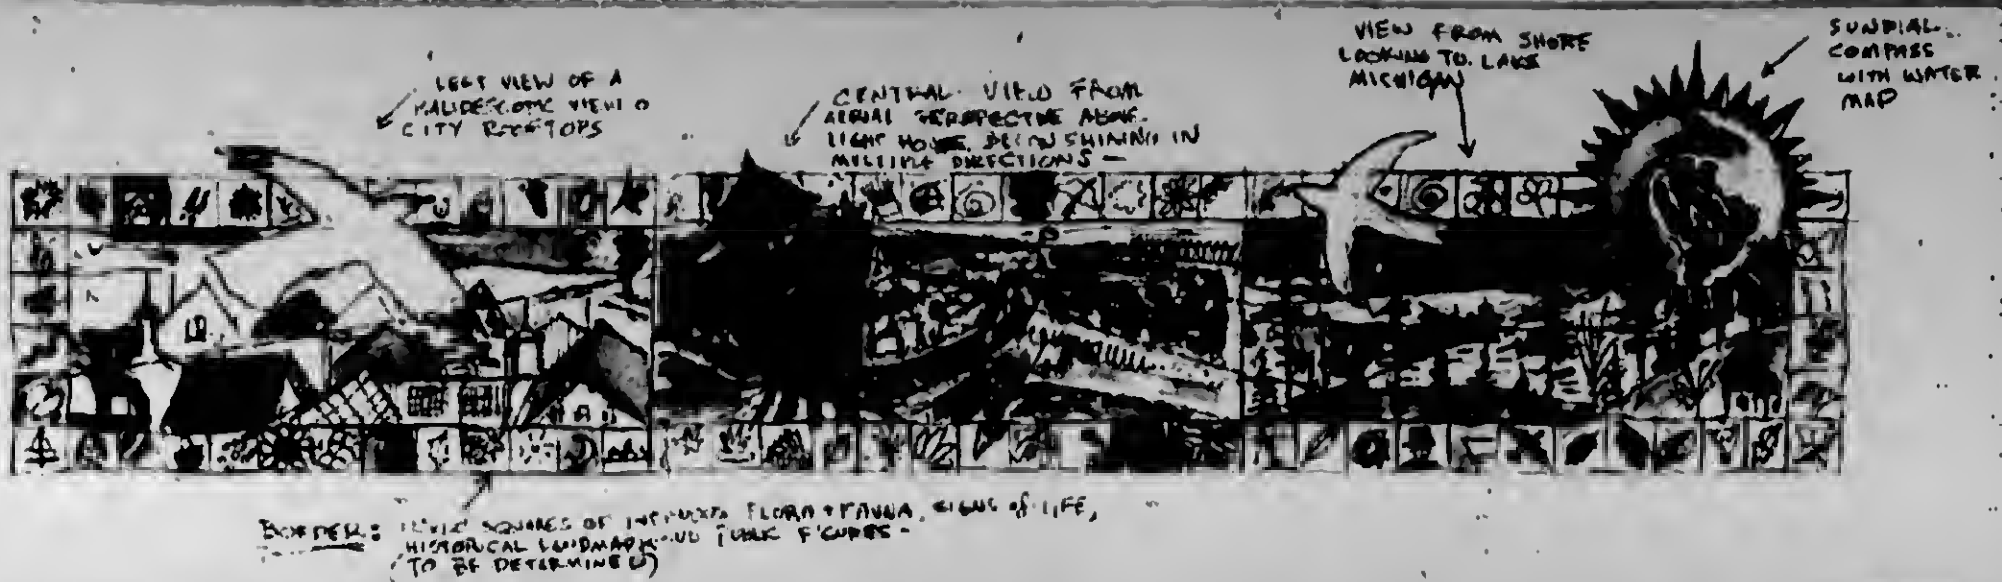 LEFT VIEW OF A
KALIDESCOPIC VIEW O
CITY ROOFTOPS
CENTRAL VIEW FROM
AERIAL PERSPECTIVE ABOVE
LIGHT HOUSE, SHINING IN
MULTIPLE DIRECTIONS —
VIEW FROM SHORE
LOOKING TO LAKE
MICHIGAN
SUNDIAL
COMPASS
WITH WATER
MAP
BORDER: SQUARES OF FLORA + FAUNA, SIGNS of LIFE,
HISTORICAL LANDMARK FIGURES -
(TO BE DETERMINED)